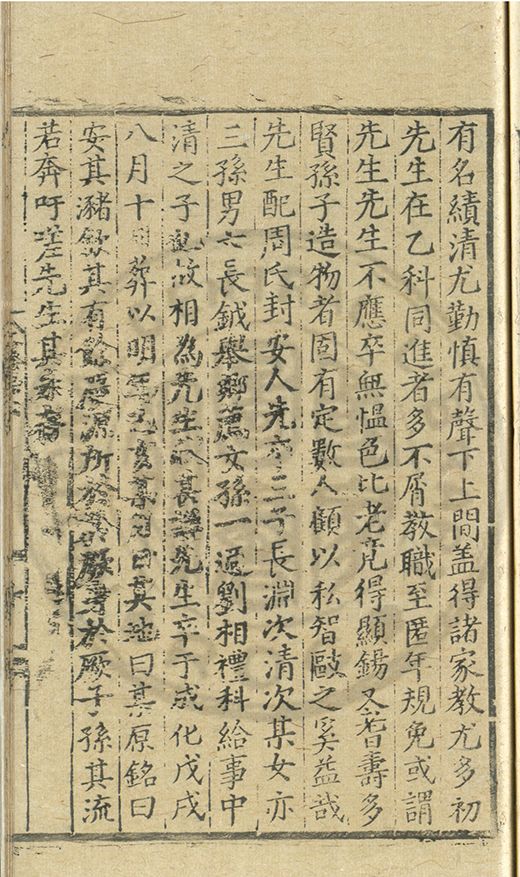 有名績清尤勤慎有聲下上間盖得諸家教尤多初
先生在乙科同進者多不屑教職至匿年規免或謂
先生先生不應卒無愠色比老竟得顯錫令昏壽多
賢孫子造物者固有定數人顧以私智敺之奚益哉
先生配周氏封安人先卒三子長淵次清次某女亦
三孫男六長鉞舉鄉薦女孫一適劉相禮科給事中
清之子也故相為先生先生卒于成化戊戌
八月十日葬以明年月日其地曰某原銘曰
安其瀦歛其有源所於厥子孫其流
若奔吁嗟先生其